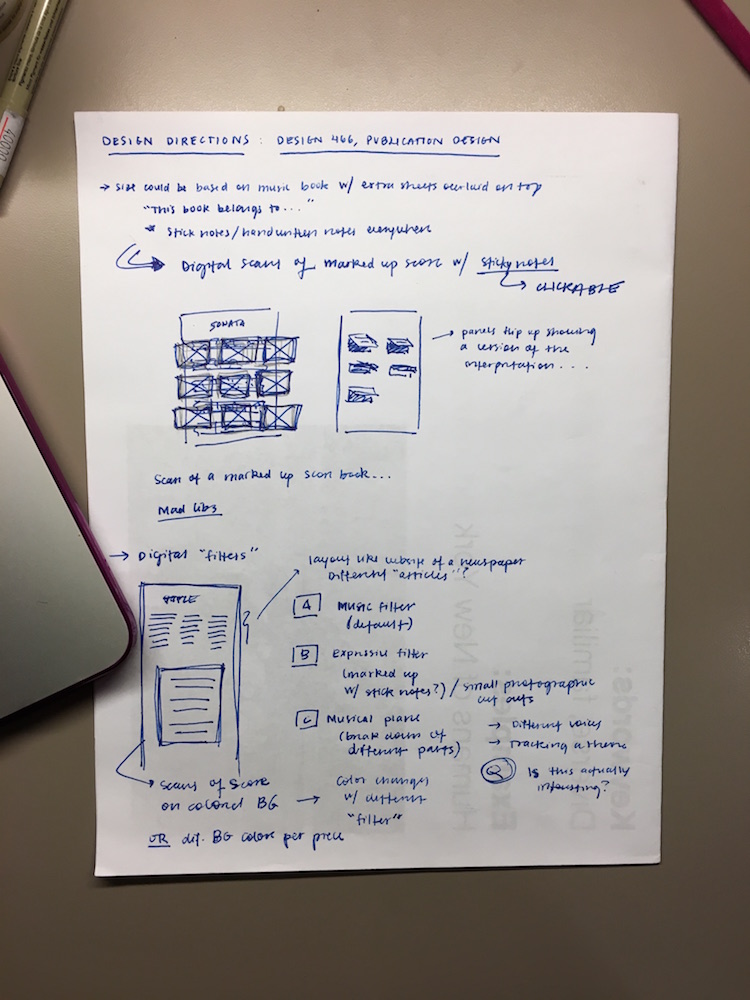 DESIGN DIRECTIONS : DESIGN 466, PUBLICATION DESIGN
→ size could be based on music book w/ extra sheets overlaid on top
"This book belongs to..."
* stick notes/handwritten notes everywhere
Digital scans of marked up score w/ sticky notes
→ CLICKABLE
SONATA
→ panels flip up showing
a version of the
interpretation....
Scan of a marked up score book...
Mad libs
→ Digital "filters"
layout like website of a newspaper
Different "articles"?
TITLE
A Music filter
(default)
B Expressive filter
(marked up
w/ stick notes?) / small photographic
cut outs
C Musical plane
(break down of
different parts)
→ Different voices
→ Tracking a theme
Q Is this actually
interesting?
scans of score
on colored BG
→ Color changes
w/ different
"filter"
OR dif. BG colors per piece
Humans of New York
familiar
40000